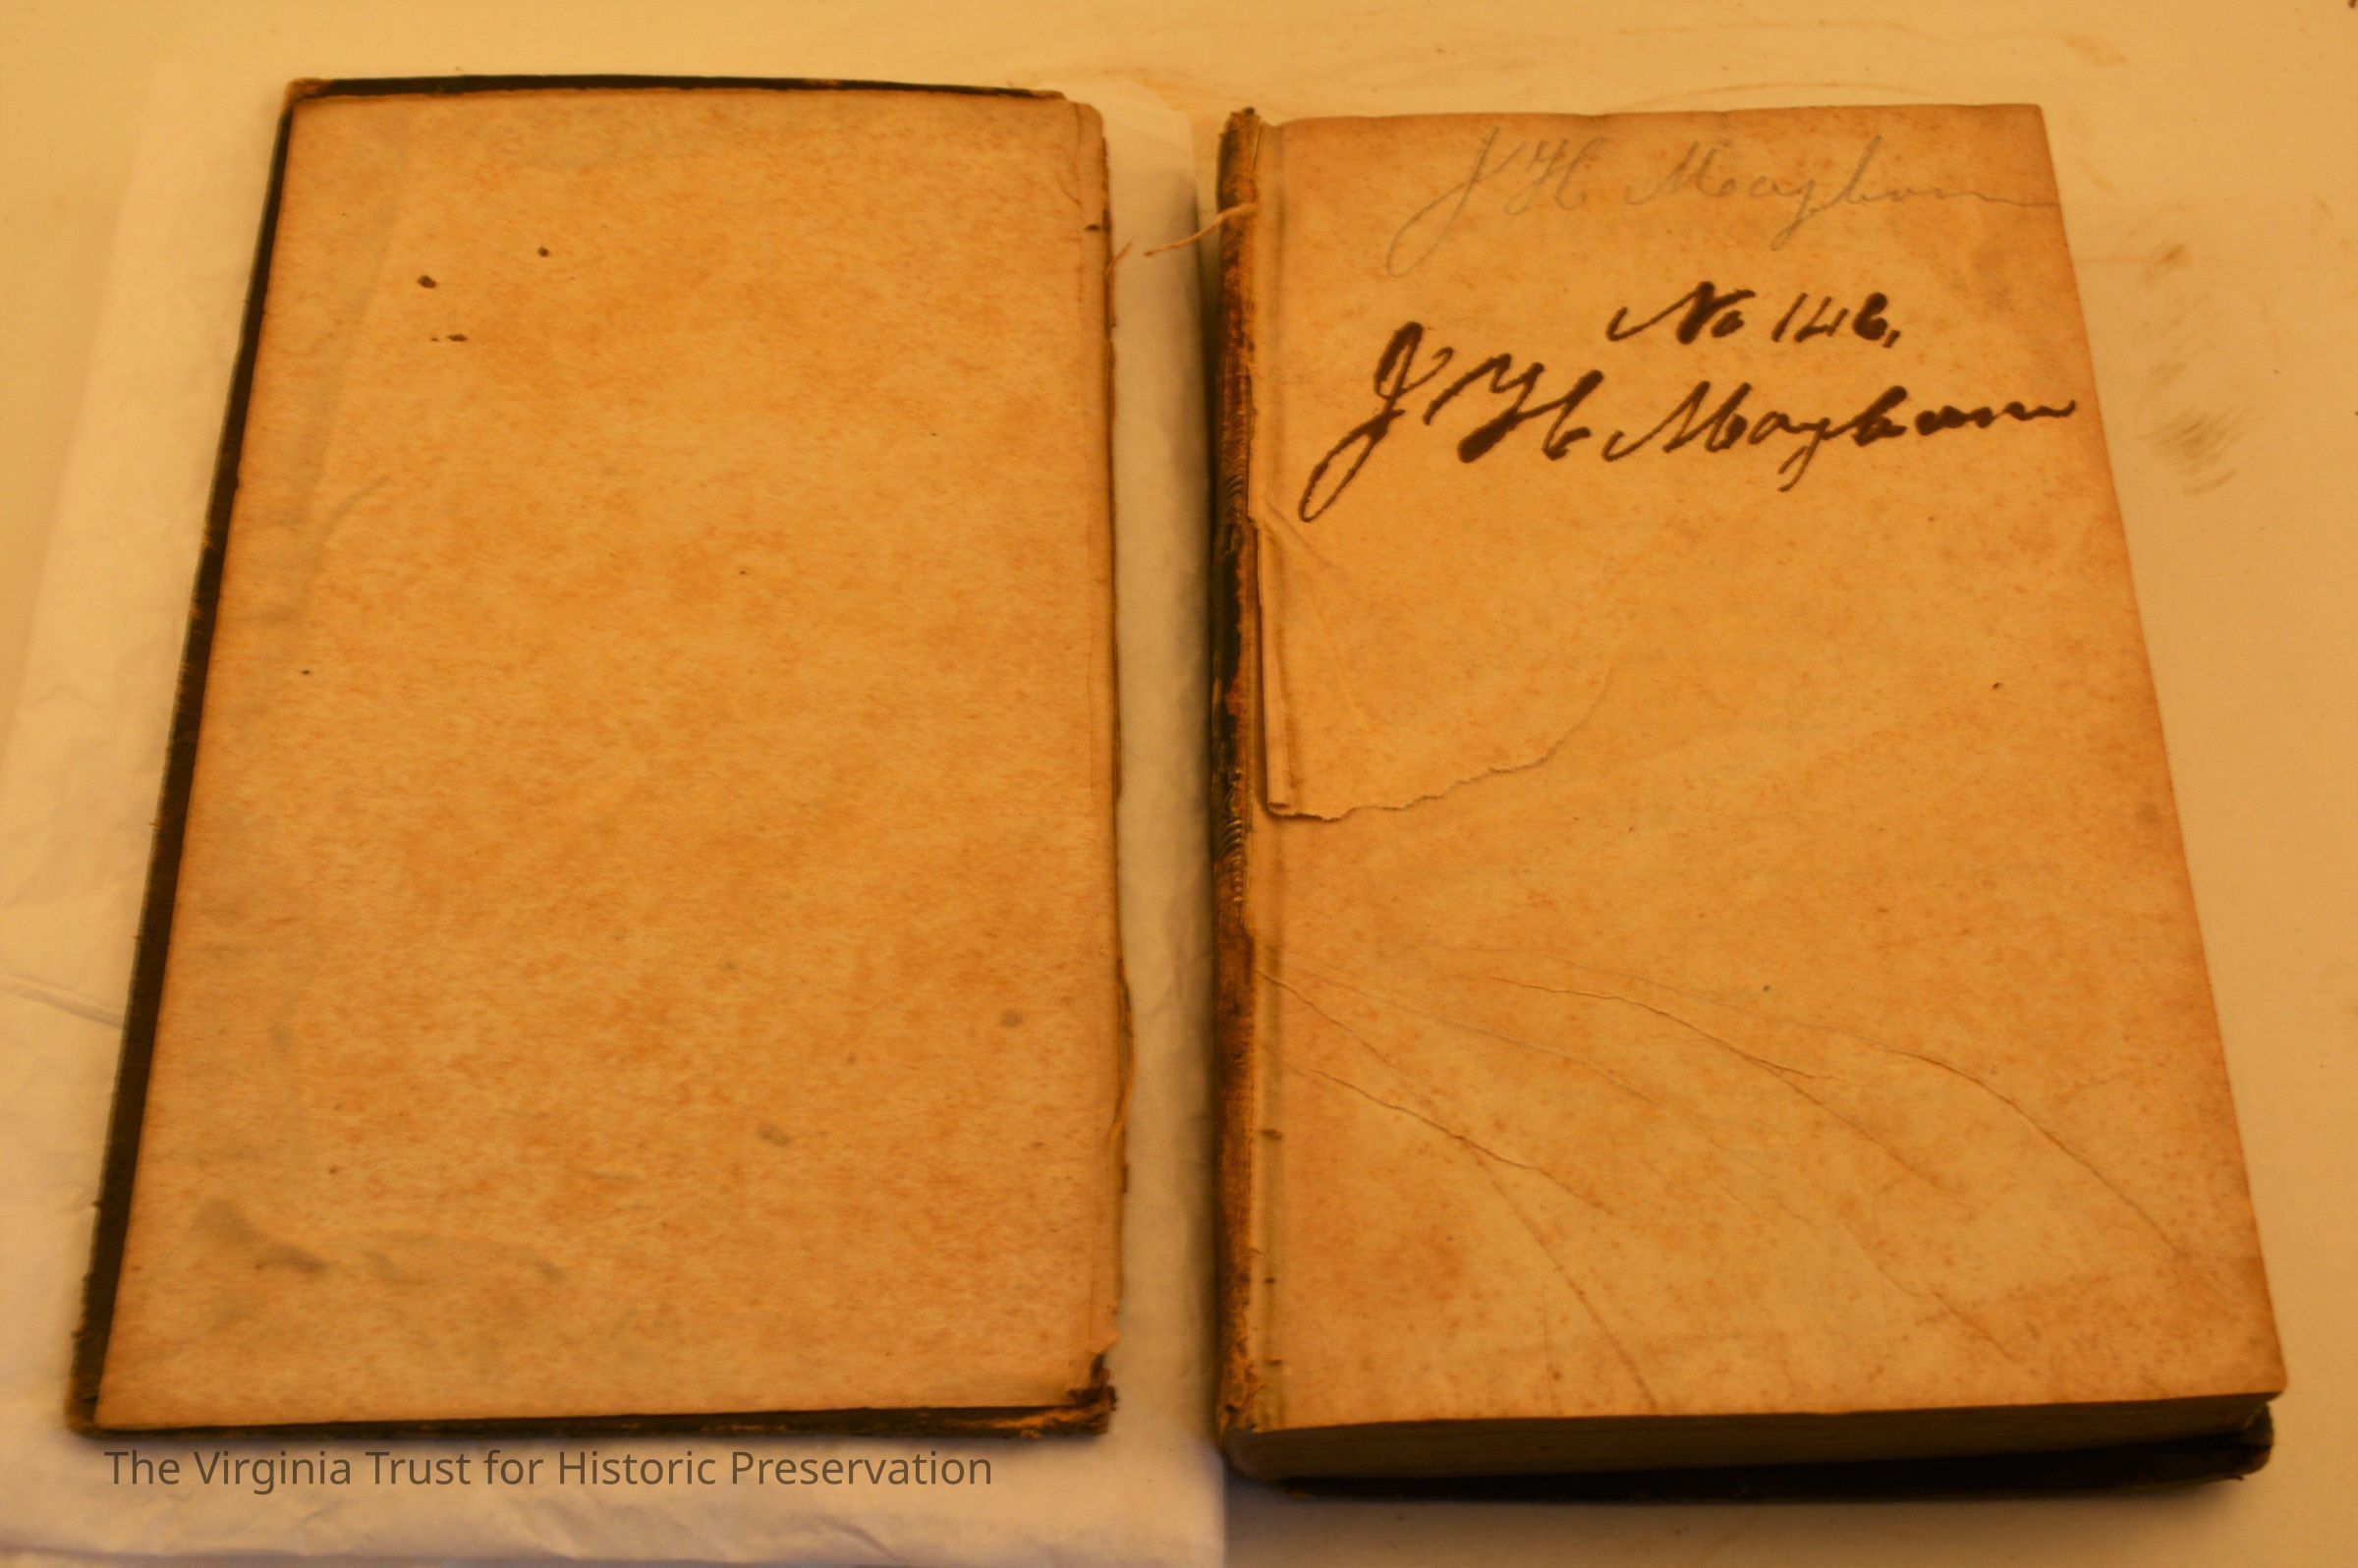 J H Mayborn
No 146.
J H Mayborn
The Virginia Trust for Historic Preservation